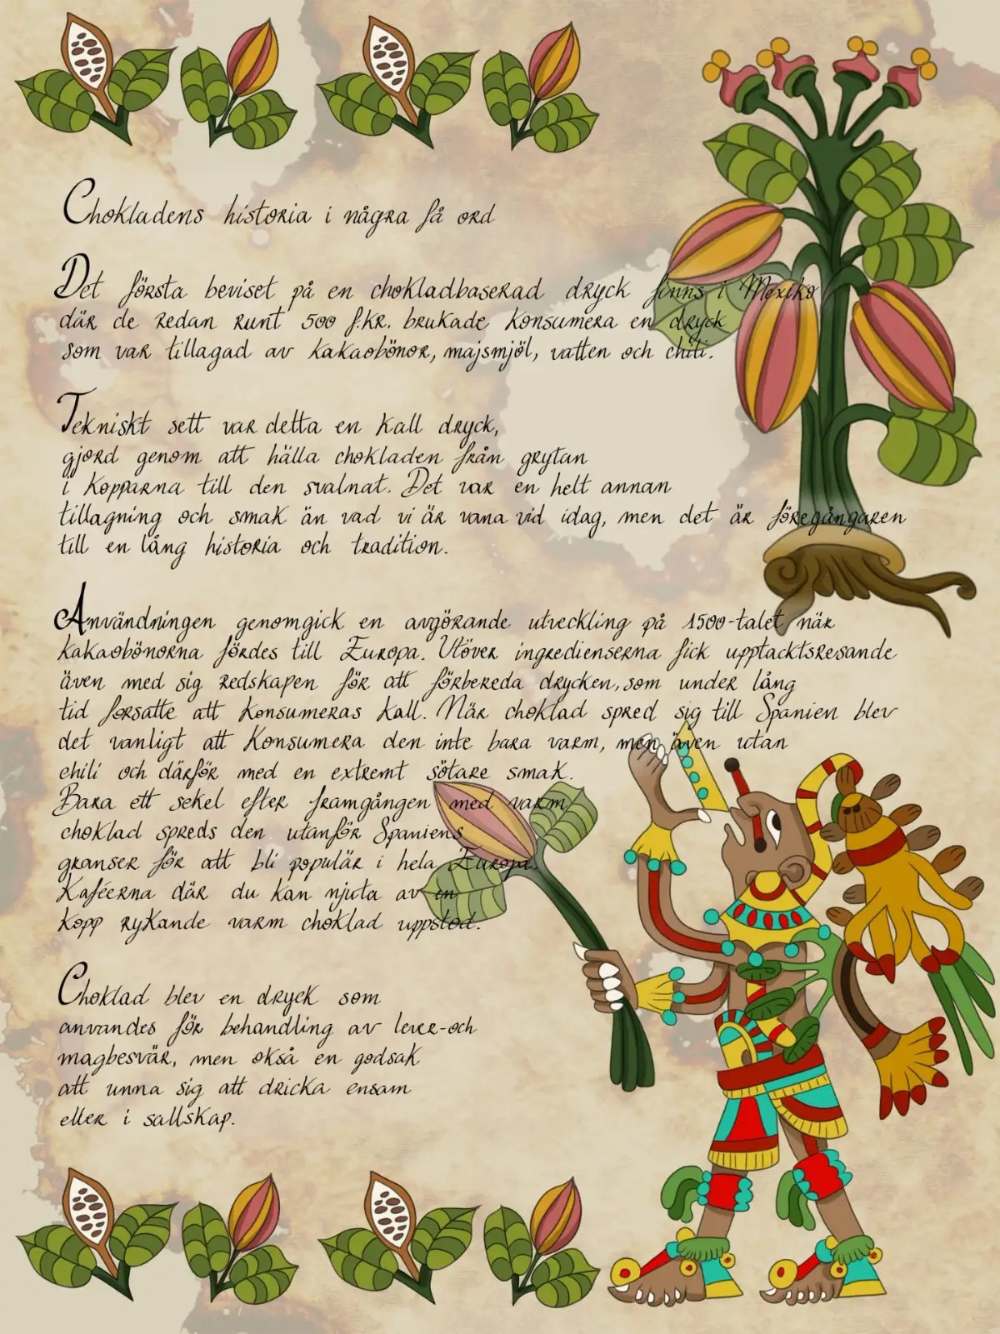 Chokladens historia i några få ord
Det första beviset på en chokladbaserad dryck finns i Mexiko
där de redan runt 500 f.kr. brukade konsumera en dryck
som var tillagad av kakaobönor, majsmjöl, vatten och chili.
Tekniskt sett var detta en kall dryck,
gjord genom att hälla chokladen från grytan
i kopparna till den svalnat. Det var en helt annan
tillagning och smak än vad vi är vana vid idag, men det är föregångaren
till en lång historia och tradition.
Användningen genomgick en avgörande utveckling på 1500-talet när
kakaobönorna fördes till Europa. Utöver ingredienserna fick upptacktsresande
även med sig redskapen för att förbereda drycken, som under lång
tid forsatte att konsumeras kall. När choklad spred sig till Spanien blev
det vanligt att konsumera den inte bara varm, men även utan
chili och därför med en extremt sötare smak.
Bara ett sekel efter framgången med varm
choklad spreds den utanför Spaniens
granser för att bli populär i hela Europa.
Kaféerna där du kan njuta av en
kopp rykande varm choklad uppstod.
Choklad blev en dryck som
anvandes för behandling av lever-och
magbesvär, men okså en godsak
att unna sig att dricka ensam
eller i sallskap.